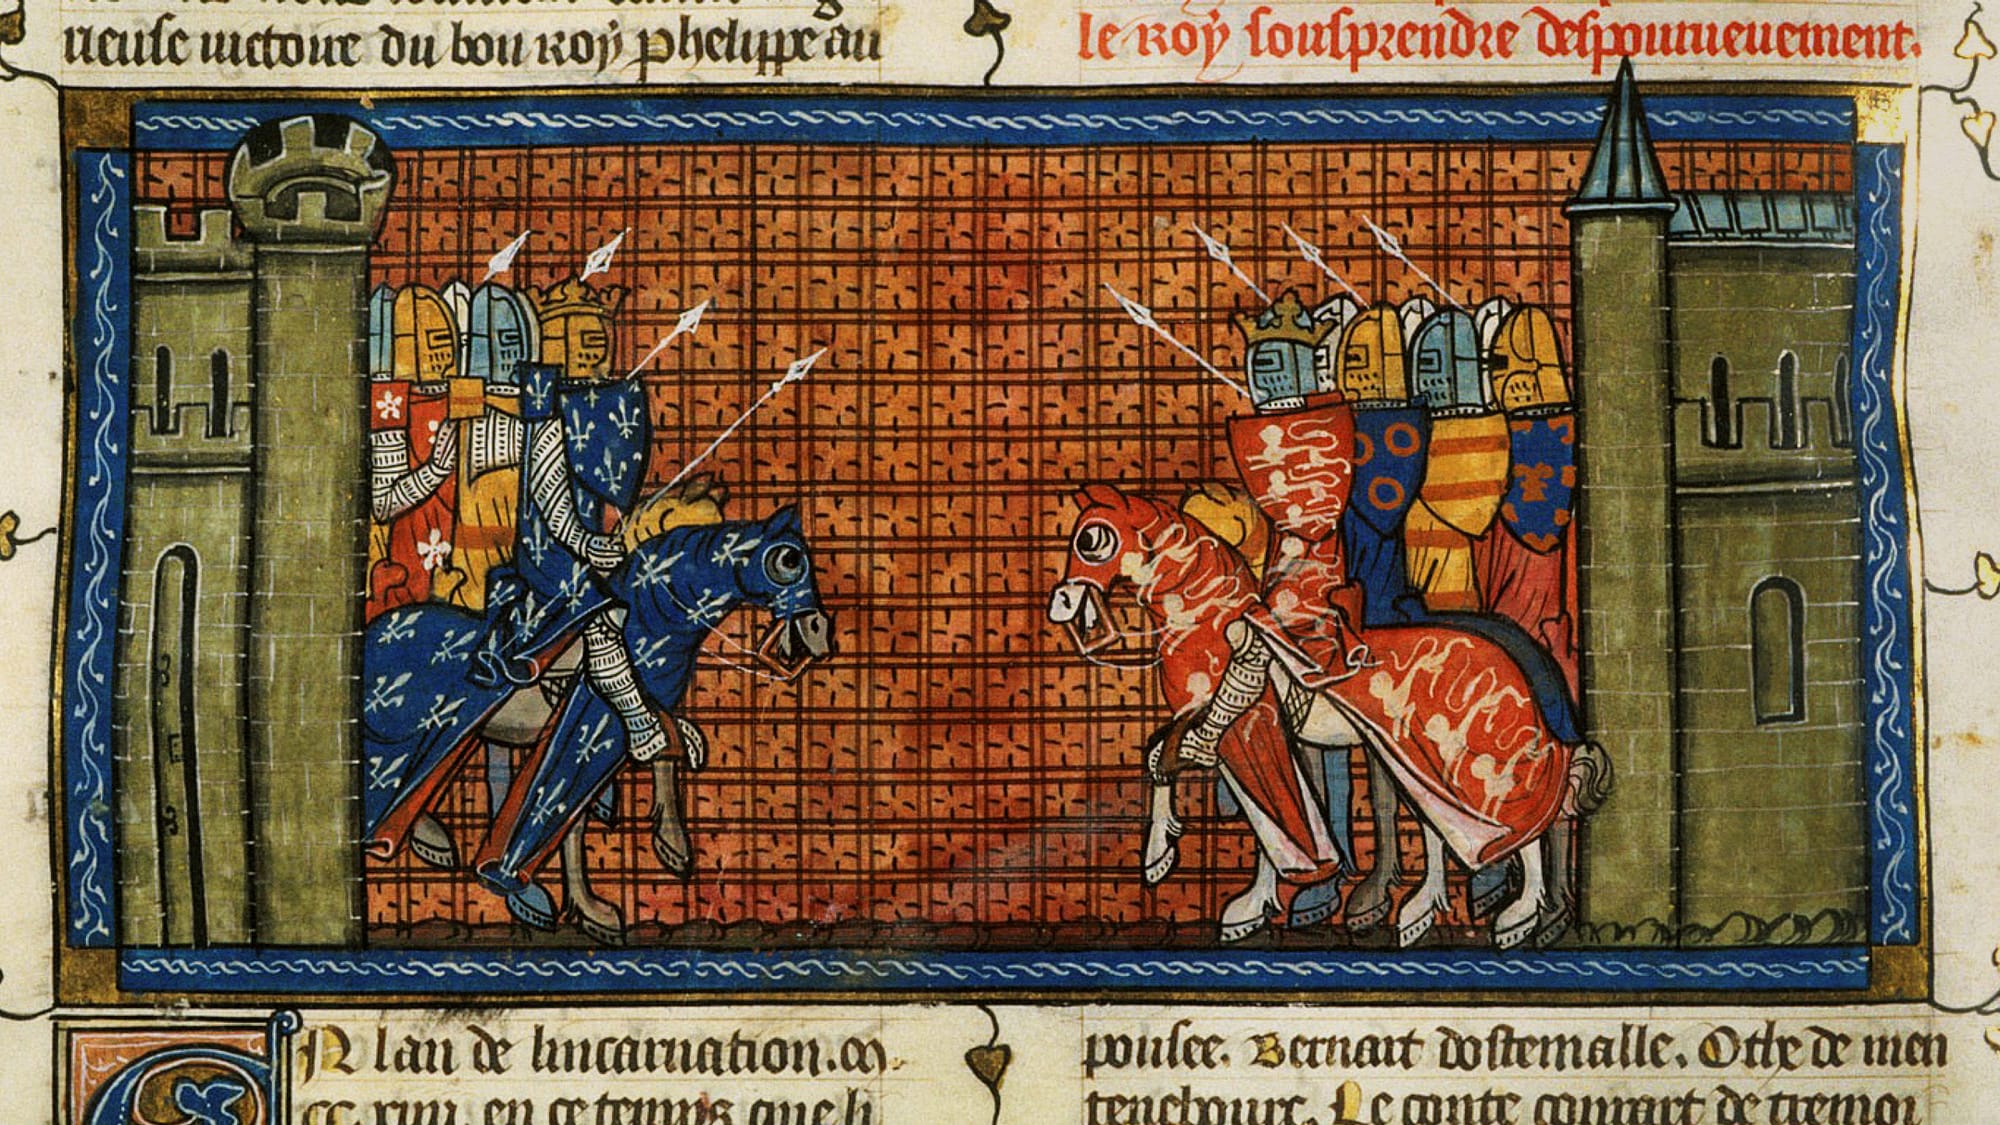 neuse victoire du bon roy phelippe au
le roy sousprendre despourueuement.
En lan de lincarnation .m.
cc xiiii. en ce temps que li
pousee. Bernart dostemalle. Othe de men
tenebourc. Le conte conrart de tremoi